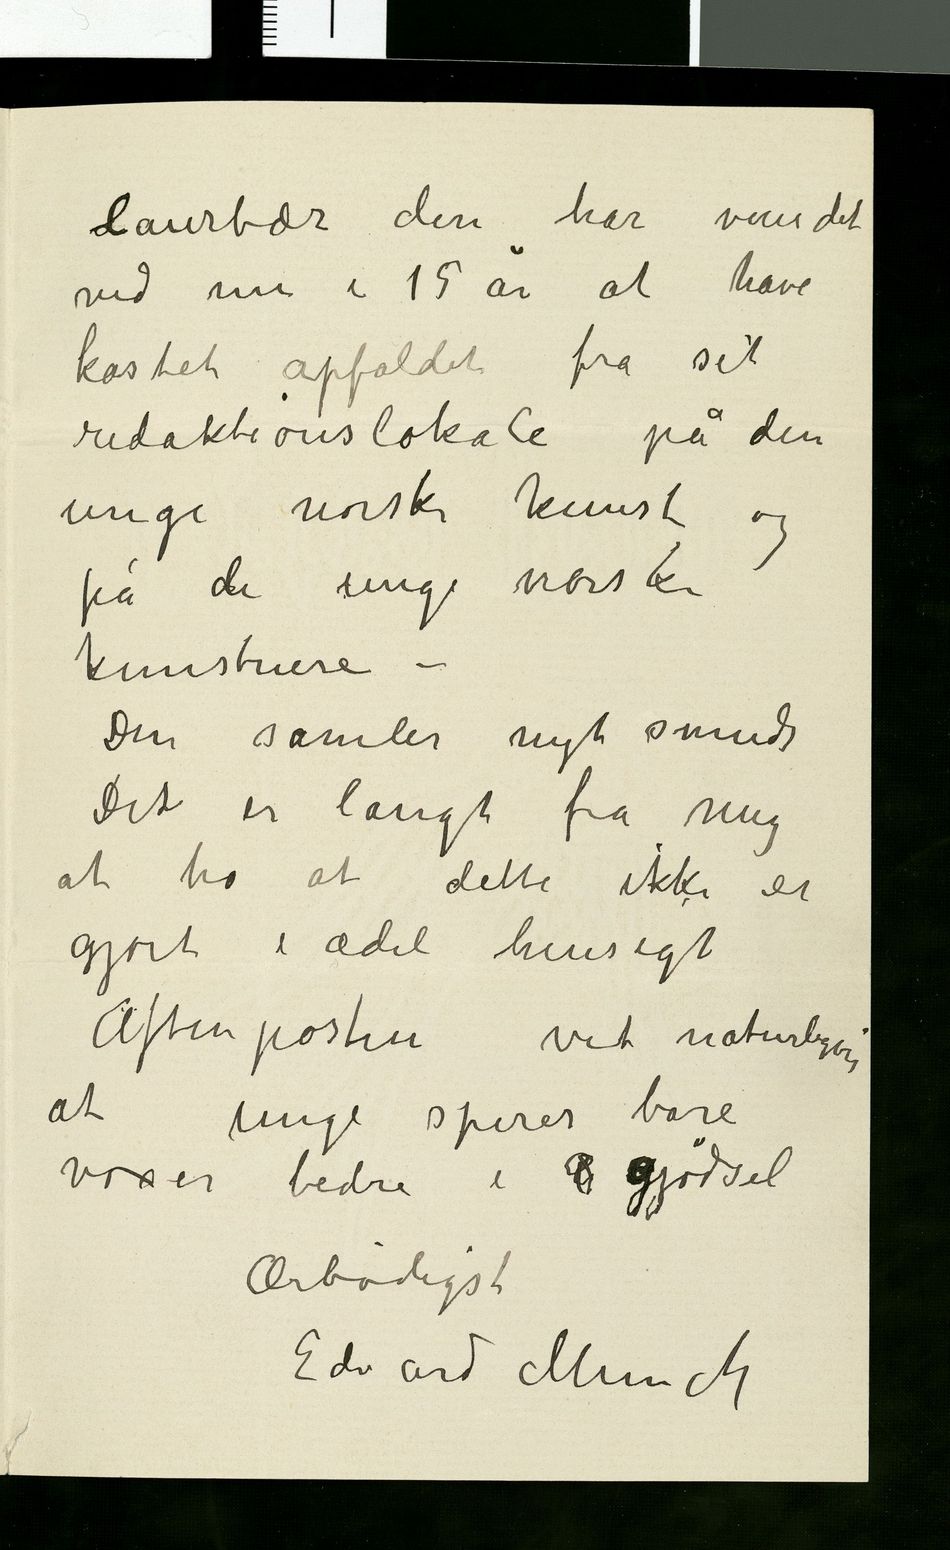 Laurbær den har vundet
ved nu i 15 år at have
kastet apfaldet fra sit
redaktionslokale på den
unge norske kunst og
på de unge norske
kunstnere –
Den samler nyt smuds
Det er langt fra mig
at tro at dette ikke er
gjort i ædel hensigt
Aftenposten vet naturligvis
at unge spirer bare
voxer bedre i gjødsel
Ærbødigst
Edvard Munch